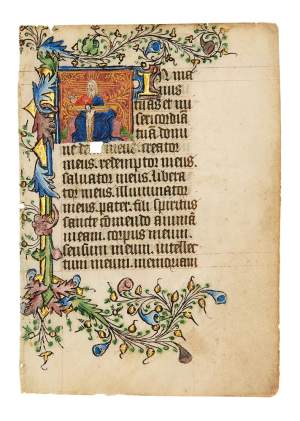 In ma
nus
tuas et mi
sericordi
domi
ne meus. creator
meus. redemptor meus.
salvator meus. libera
tor meus. illuminator
meus. pater. fili. spiritus
sancte comendo animā
meam. corpus meum.
sensum meum. intellec
tum meum. memoriam